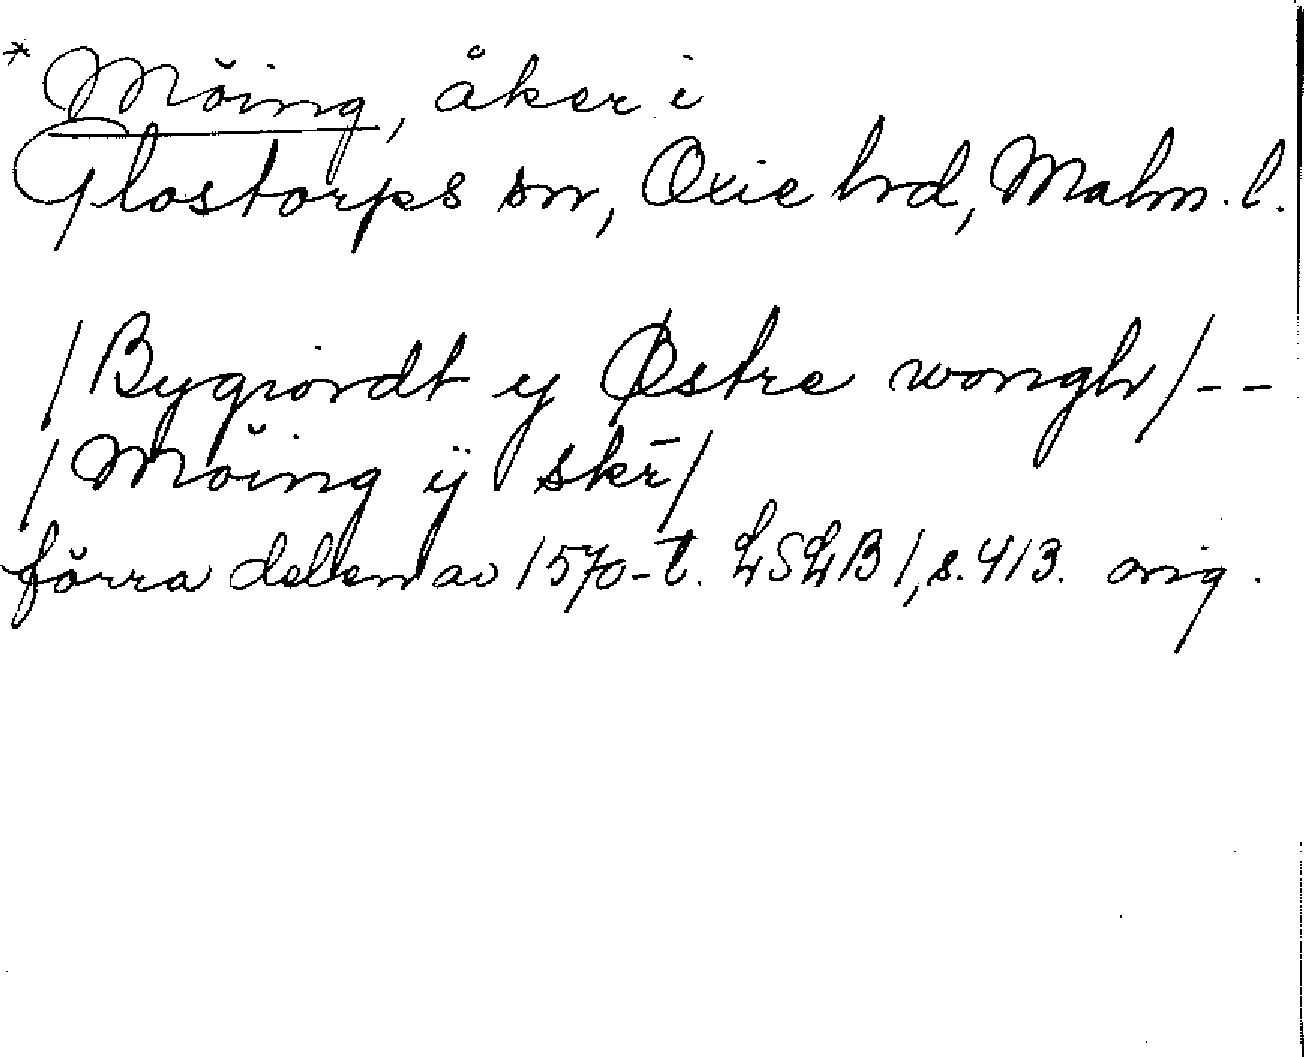 * Möing, åker i
Glostorps sn, Oxie hd, Malm. l.
/Bygiordt y Østre wongh/--
/Möing ÿ skr̄/
förra delen av 1570-t. LSLB 1, s. 413. orig.